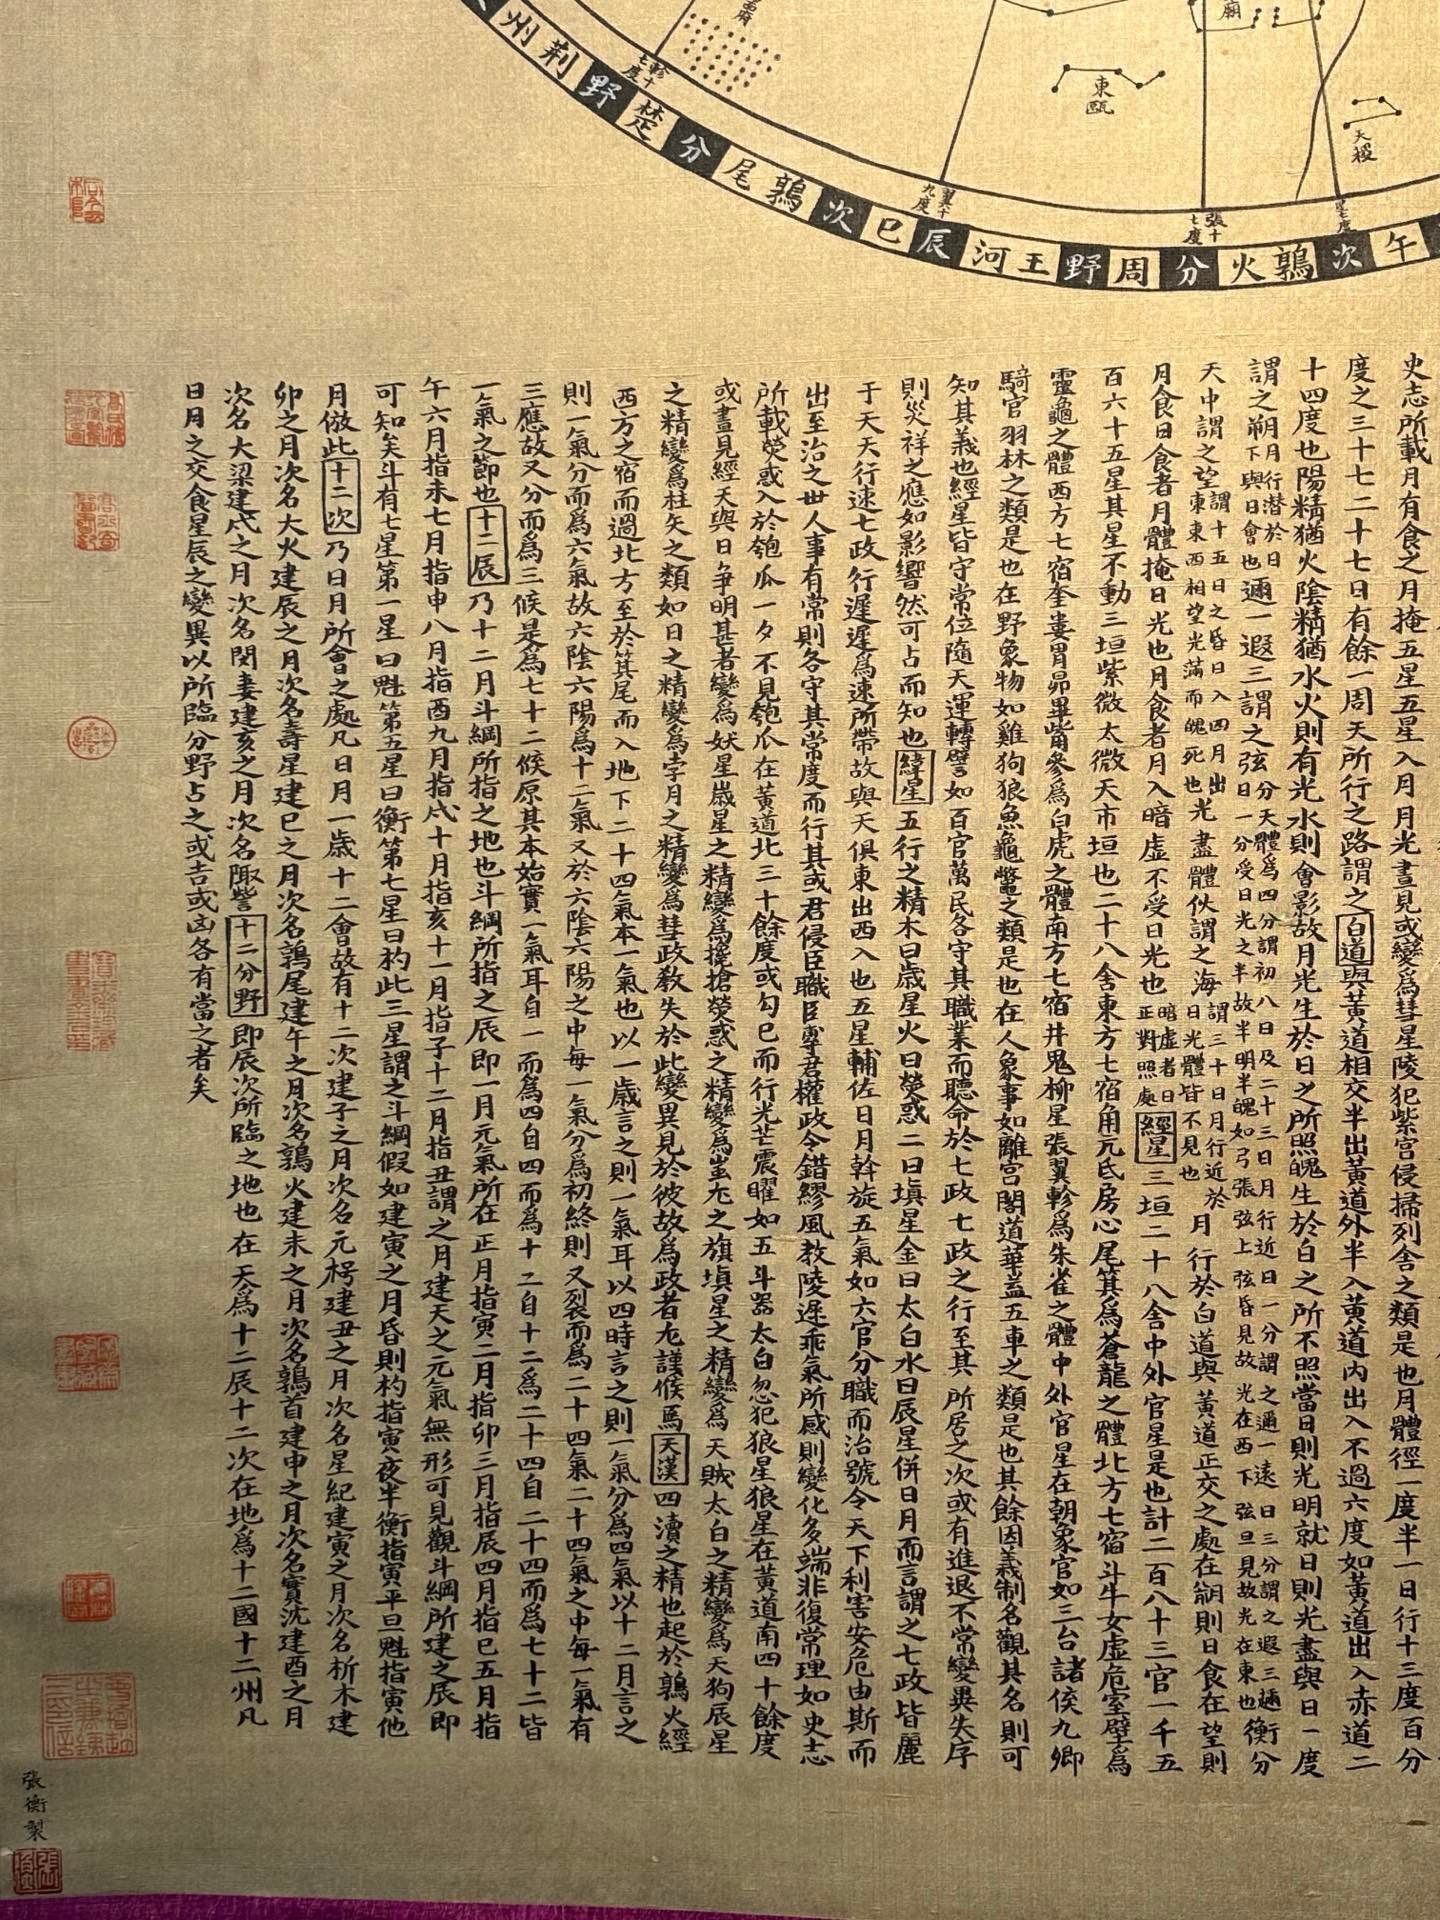 廟
東甌
天稷
軫十七度
翼十九度
張十七度
星七度
午次鶉火分周野王河辰巳次鶉尾分楚野荊州
史志所載月有食之月掩五星五星入月月光晝見或變為彗星陵犯紫宮侵掃列舍之類是也月體徑一度半一日行十三度百分
度之三十七二十七日有餘一周天所行之路謂之白道與黃道相交半出黃道外半入黃道內出入不過六度如黃道出入赤道二
十四度也陽精猶火陰精猶水火則有光水則會影故月光生於日之所照魄生於日之所不照當日則光明就日則光盡與日一度
謂之朔月行潛於日下與日會也邇一遐三謂之弦分天體為四分謂初八日及二十三日月行近日一分謂之邇一遠日三分謂之遐三邇日一分受日光之半故半明半魄如弓張弦上弦昏見故光在西下弦旦見故光在東也衡分
天中謂之望謂十五日之昏日入四月出東東西相望光滿而魄死也光盡體伏謂之海謂三十日月行近於日光體皆不見也月行於白道與黃道正交之處在朔則日食在望則
月食日食者月體掩日光也月食者月入暗虛不受日光也暗虛者日正對照處經星三垣二十八舍中外官星是也計二百八十三官一千五
百六十五星其星不動三垣紫微太微天市垣也二十八舍東方七宿角亢氐房心尾箕為蒼龍之體北方七宿斗牛女虛危室壁為
靈龜之體西方七宿奎婁胃昴畢觜參為白虎之體南方七宿井鬼柳星張翼軫為朱雀之體中外官星在朝象官如三台諸侯九卿
騎官羽林之類是也在野象物如雞狗狼魚龜鱉之類是也在人象事如離宮閣道華蓋五車之類是也其餘因義制名觀其名則可
知其義也經星皆守常位隨天運轉譬如百官萬民各守其職業而聽命於七政七政之行至其所居之次或有進退不常變異失序
則災祥之應如影響然可占而知也緯星五行之精木曰歲星火曰熒惑二曰填星金曰太白水曰辰星併日月而言謂之七政皆麗
于天天行速七政行遲遲為速所帶故與天俱東出西入也五星輔佐日月斡旋五氣如六官分職而治號令天下利害安危由斯而
出至治之世人事有常則各守其常度而行其或君侵臣職臣專君權政令錯繆風教陵遲乖氣所感則變化多端非復常理如史志
所載熒惑入於匏瓜一夕不見匏瓜在黃道北三十餘度或勾巳而行光芒震曜如五斗器太白忽犯狼星狼星在黃道南四十餘度
或晝見經天與日爭明甚者變為妖星歲星之精變為攙搶熒惑之精變為蚩尤之旗填星之精變為天賊太白之精變為天狗辰星
之精變為枉矢之類如日之精變為孛月之精變為彗政教失於此變異見於彼故為政者尤謹候焉天漢四瀆之精也起於鶉火經
西方之宿而過北方至於箕尾而入地下二十四氣本一氣也以一歲言之則一氣耳以四時言之則一氣分為四氣以十二月言之
則一氣分而為六氣故六陰六陽為十二氣又於六陰六陽之中每一氣分為初終則又裂而為二十四氣二十四氣之中每一氣有
三應故又分而為三候是為七十二候原其本始實一氣耳自一而為四自四而為十二自十二為二十四自二十四而為七十二皆
一氣之節也十二辰乃十二月斗綱所指之地也斗綱所指之辰即一月元氣所在正月指寅二月指卯三月指辰四月指巳五月指
午六月指未七月指申八月指酉九月指戌十月指亥十一月指子十二月指丑謂之月建天之元氣無形可見觀斗綱所建之辰即
可知矣斗有七星第一星曰魁第五星曰衡第七星曰杓此三星謂之斗綱假如建寅之月昏則杓指寅夜半衡指寅平旦魁指寅他
月倣此十二次乃日月所會之處凡日月一歲十二會故有十二次建子之月次名元枵建丑之月次名星紀建寅之月次名析木建
卯之月次名大火建辰之月次名壽星建巳之月次名鶉尾建午之月次名鶉火建未之月次名鶉首建申之月次名實沈建酉之月
次名大梁建戌之月次名閔婁建亥之月次名陬訾十二分野即辰次所臨之地也在天為十二辰十二次在地為十二國十二州凡
日月之交食星辰之變異以所臨分野占之或吉或凶各有當之者矣
張衡製